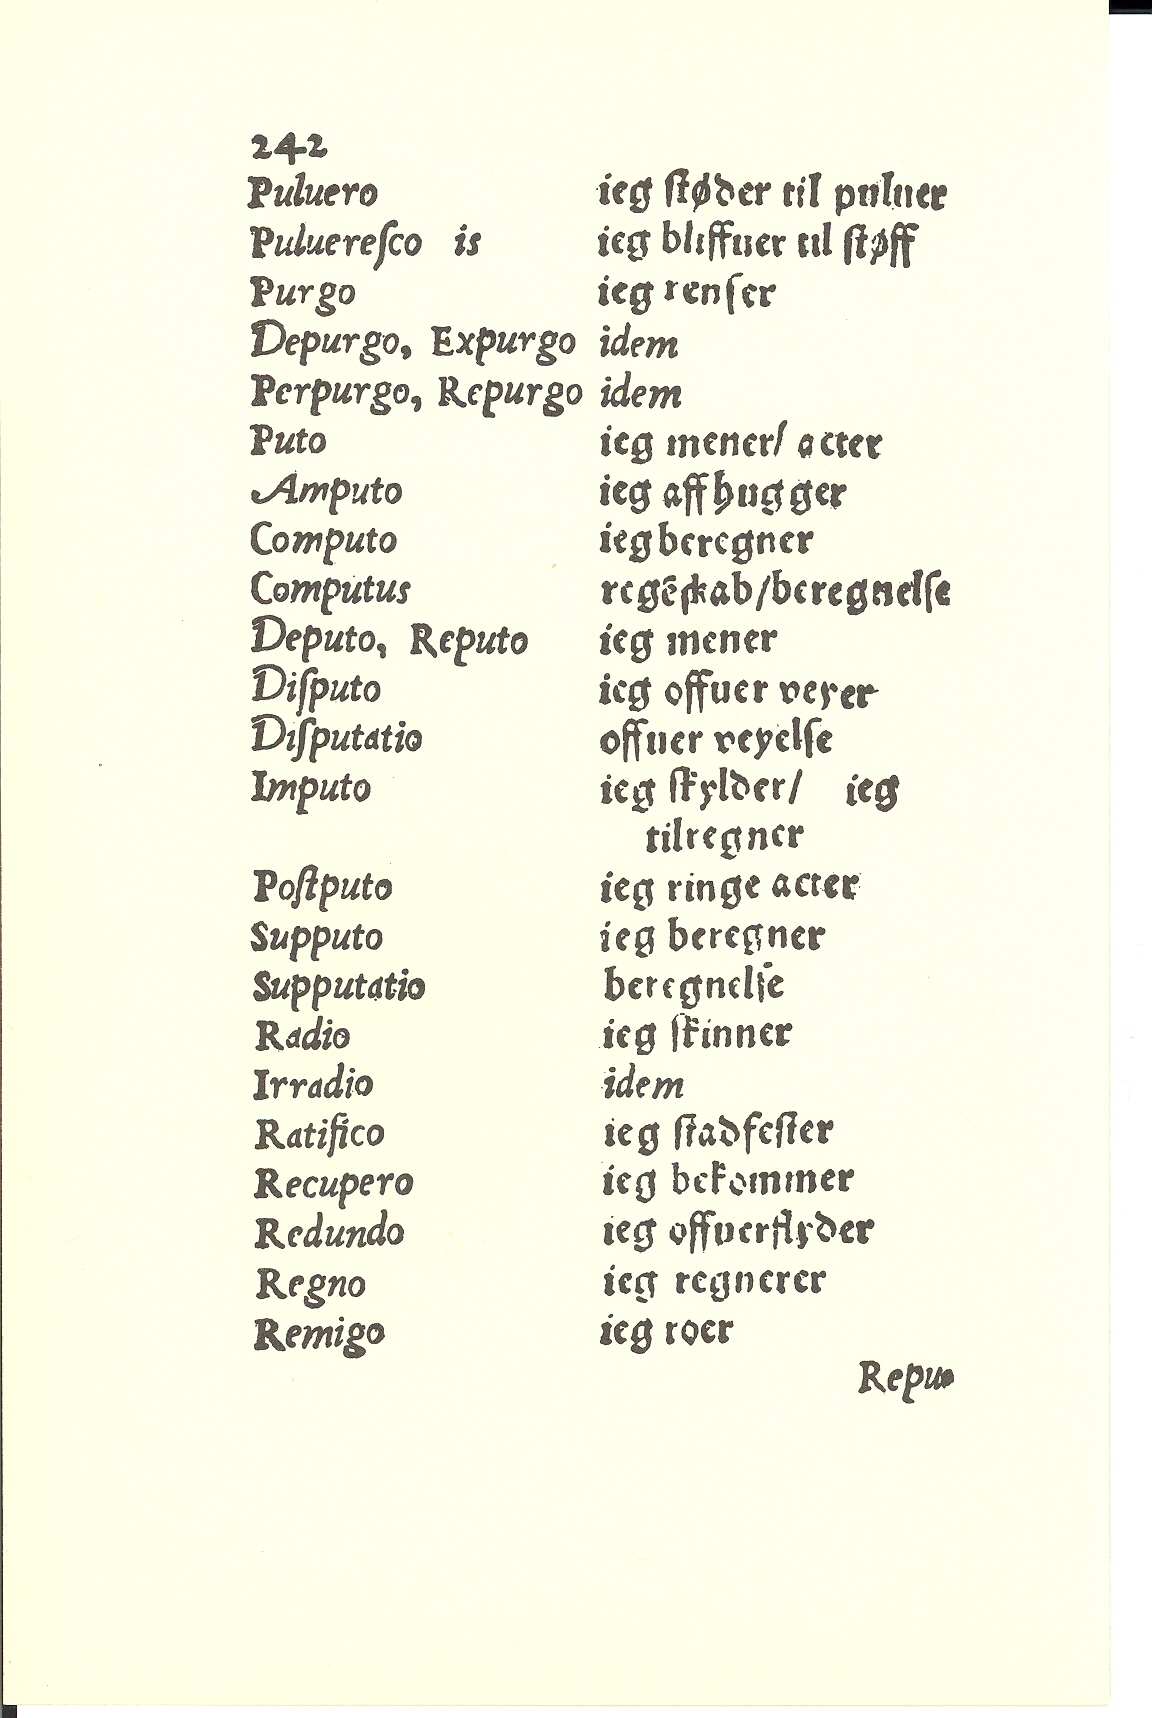 242
Puluero ieg ſtøder til puluer
Puluereſco is ieg bliffuer til ſtøff
Purgo ieg renſer
Depurgo, Expurgo idem
Perpurgo, Repurgo idem
Puto ieg mener/ acter
Amputo ieg aff hugger
Computo ieg beregner
Computus regēſkab/beregnelſe
Deputo, Reputo ieg mener
Diſputo ieg offuer veyer
Diſputatio offuer veyelſe
Imputo ieg ſkylder/ ieg
tilregner
Poſtputo ieg ringe acter
Supputo ieg beregner
Supputatio beregnelſe
Radio ieg ſkinner
Irradio idem
Ratifico ieg ſtadfeſter
Recupero ieg bekommer
Redundo ieg offuerflyder
Regno ieg regnerer
Remigo ieg roer
Repu⸗